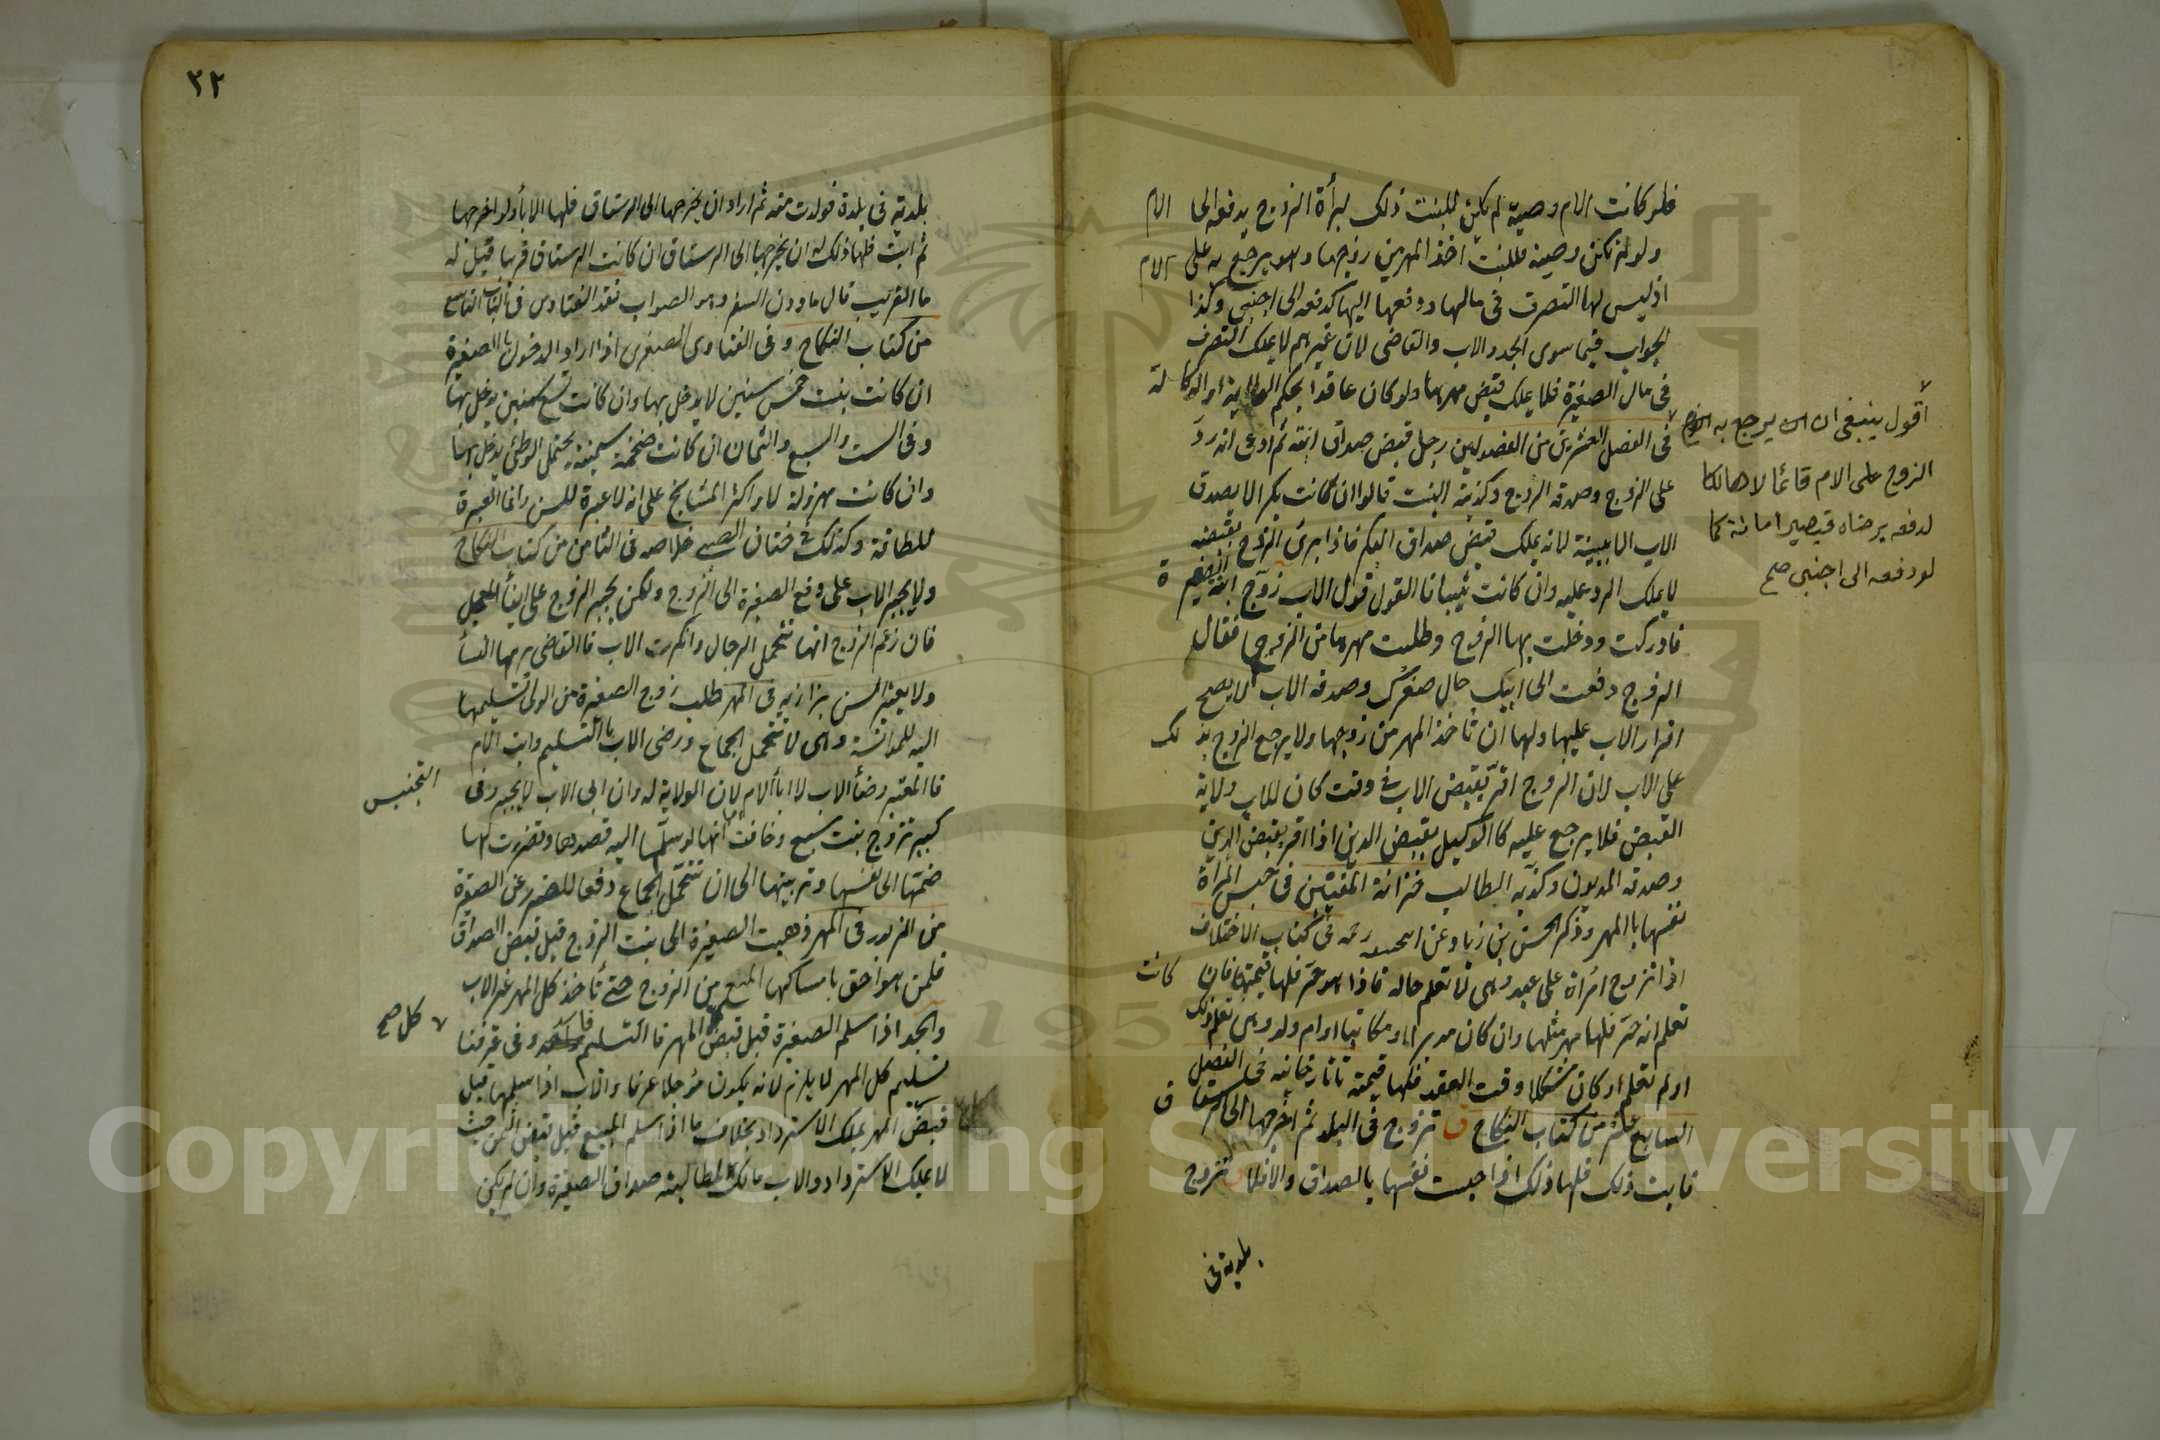 فلو كانت الام وصية لم يكن للبنت ذلك لبرأة الزوج يدفعه الى الام
ولو لم تكن وصية للبنت اخذ المهر من زوجها وهو يرجع به على الام
اذ ليس لها التصرف فى مالها ودفعها اليها كدفعه الى اجنبى وكذا
الجواب فيما سوى الجد والاب والقاضى لان غيرهم لا يملك التصرف
فى مال الصغيرة فلا يملك قبض مهرها ولو كان عاقدا بحكم الولاية او الوكالة
فى الفصل العشرين من الفصولين رجل قبض صداق ابنته ثم ادعى انه رد
على الزوج وصدقه الزوج وكذبته البنت قالوا ان كانت بكرا لا يصدق
الاب الا ببينة لانه يملك قبض صداق البكر فاذا برئ الزوج بقبضه
لا يملك الرد عليه وان كانت ثيبا فالقول قول الاب زوج ابنته الصغيرة
فادركت ودخلت بها الزوج وطلبت مهرها من الزوج فقال
الزوج دفعت الى ابيك حال صغرك وصدقه الاب لا يصح
اقرار الاب عليها ولها ان تأخذ المهر من زوجها ولا يرجع الزوج بذلك
على الاب لان الزوج اقر بقبض الاب فى وقت كان للاب ولاية
القبض فلا يرجع عليه كالوكيل بقبض الدين اذا اقر بقبض الدين
وصدقه المديون وكذبه الطالب خزانة المفتين فى حبس المرأة
نفسها بالمهر وذكر الحسن بن زياد عن رحمه فى كتاب الاختلاف
اذا تزوج امرأة على عبد وهى لا تعلم حاله فاذا هو حر فلها قيمته فان كانت
تعلم انه حر فلها مهر مثلها وان كان مدبرا او مكاتبا او ام ولد وهى تعلم ذلك
او لم تعلم او كان مشكلا وقت العقد فلها قيمته تاتارخانيه فى الفصل
السابع عشر من كتاب النكاح ف تزوج فى البلد ثم اخرجها الى الرستاق
فابت ذلك فلها ذلك اذا حبست نفسها بالصداق والا فلا تزوج
بلدية فى
اقول ينبغى ان يرجع به
الزوج على الام قائما لا هالكا
لدفعه برضاه فيصير امانة كما
لو دفعه الى اجنبى صح
٢٢
بلدية فى بلدة فولدت منه ثم اراد ان يخرجها الى الرستاق فلها الابأ ولو اخرجها
ثم ابت فلها ذلك له ان يخرجها الى الرستاق ان كانت الرستاق قريبا قيل له
ما القريب قال ما دون السفر وهو الصواب نقد الفتاوى فى الباب التاسع
من كتاب النكاح وفى الفتاوى الصغرى اذا اراد الدخول بالصغيرة
ان كانت بنت خمس سنين لا يدخل بها وان كانت تسع سنين يدخل بها
وفى الست والسبع والثمان ان كانت ضخمة سمينة يحتمل الوطئ يدخل بها
وان كانت مهزولة لا واكثر المشايخ على انه لا عبرة للسن وانما العبرة
للطاقة وكذلك فى ختان الصبى خلاصه فى الثامن من كتاب النكاح
ولا يجبر الاب على دفع الصغيرة الى الزوج ولكن يجبر الزوج على ايفأ المعجل
فان زعم الزوج انها تتحمل الرجال وانكرت الاب فالقاضى يريها النسأ
ولا يعتبر السن بزازيه فى المهر طلب زوج الصغيرة من الولى تسليمها
اليه للموانسة وهى لا تتحمل الجماع ورضى الاب بالتسليم وابت الام
فالمعتبر رضأ الاب لا ابأ الام لان الولاية له وان ابى الاب لا يجبر وفى التجنيس
كبير تزوج بنت سبع وخافت انها لو سلمها اليه قصدها وتضررت لها
ضمتها الى نفسها وتربيتها الى ان تتحمل الجماع دفعا للضرر عن الصغيرة
من المزبور فى المهر ذهبت الصغيرة الى بيت الزوج قبل قبض الصداق
فلمن هو احق بامساكها المنع من الزوج حتى تأخذ كل المهر غير الاب
والجد اذا سلم الصغيرة قبل قبض المهر فالتسليم فاسد وفى عرفنا
تسليم كل المهر لا يلزم لانه يكون مؤجلا عرفا والاب اذا سلمها قبل
قبض المهر يملك الاسترداد بخلاف ما اذا سلم المبيع قبل قبض الثمن حيث
لا يملك الاسترداد والاب مالك لمطالبة صداق الصغيرة وان لم يكن
كل صح
Copyright © King Saud University
1957